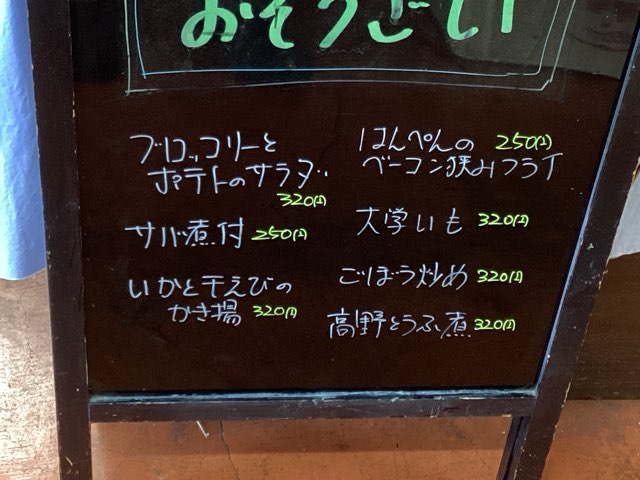 おそうざい
ブロッコリーと
ポテトのサラダ
320円
サバ煮付 250円
いかと干えびの
かき揚 320円
はんぺんの 250円
ベーコン挟みフライ
大学いも 320円
ごぼう炒め 320円
高野とうふ煮 320円